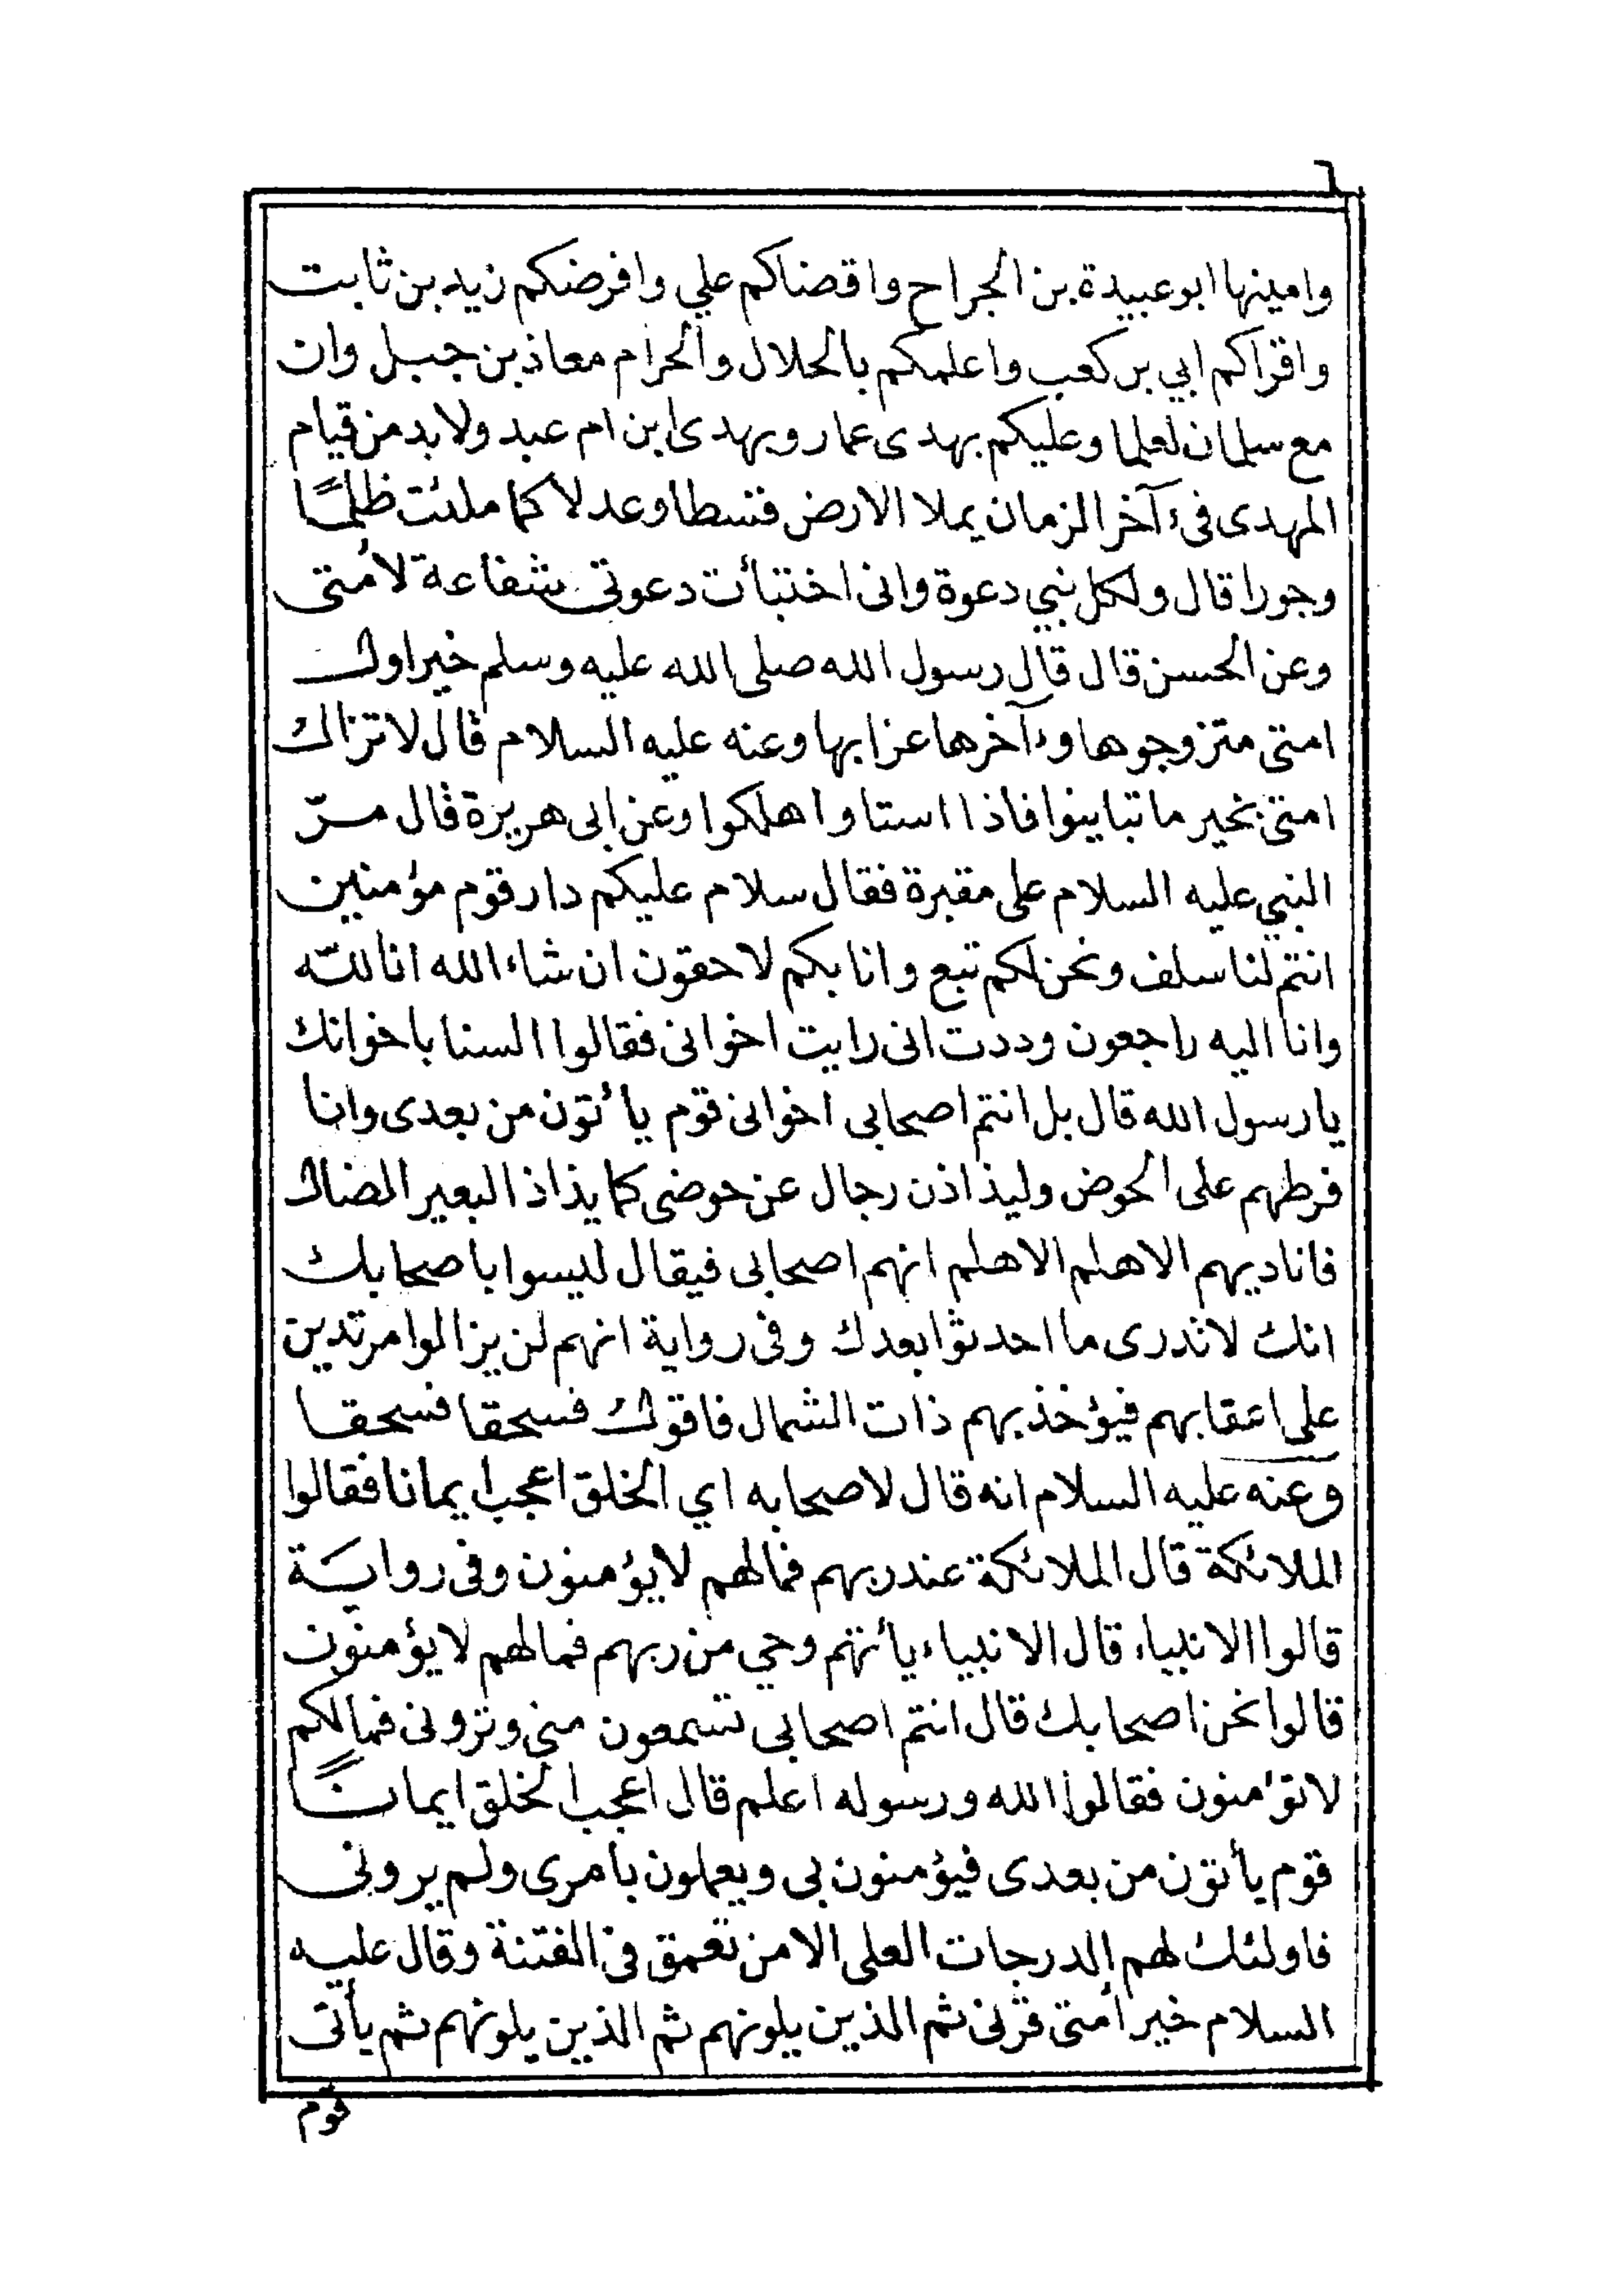 ٦
وامينها ابو عبيدة بن الجراح واقضاكم علي وافرضكم زيد بن ثابت
واقراكم ابي بن كعب واعلمكم بالحلال والحرام معاذ بن جبل وان
مع سلمان لعلما وعليكم بهدى عمار وبهدى ابن ام عبد ولا بد من قيام
المهدى فىء آخر الزمان يملا الارض قسطا وعدلا كما ملئت ظلمًا
وجورا قال ولكل نبي دعوة وانى اختبأت دعوتى شفاعة لأمتى
وعن الحسن قال قال رسول الله صلى الله عليه وسلم خير اول
امتى متزوجوها وءآخرها عزابها وعنه عليه السلام قال لا تزال
امتى بخير ما تباينوا فاذا استاووا هلكوا وعن ابى هريرة قال مرّ
النبي عليه السلام على مقبرة فقال سلام عليكم دار قوم مؤمنين
انتم لنا سلف ونحن لكم تبع وانا بكم لاحقون ان شاء الله انا للّه
وانا اليه راجعون وددت انى رايت اخوانى فقالوا السنا باخوانك
يا رسول الله قال بل انتم اصحابى اخوانى قوم يأتون من بعدى وانا
فرطهم على الحوض وليذاذن رجال عن حوضى كما يذاذ البعير الضال
فاناديهم الا هلم الا هلم انهم اصحابى فيقال ليسوا باصحابك
انك لا تدرى ما احدثوا بعدك وفى رواية انهم لن يزالوا مرتدين
على اعقابهم فيؤخذ بهم ذات الشمال فاقول فسحقا فسحقا
وعنه عليه السلام انه قال لاصحابه اي الخلق اعجب ايمانا فقالوا
الملائكة قال الملائكة عند ربهم فمالهم لا يؤمنون وفى رواية
قالوا الانبياء قال الانبياء يأتهم وحي من ربهم فمالهم لا يؤمنون
قالوا نحن اصحابك قال انتم اصحابى تسمعون منى وترونى فمالكم
لا تؤمنون فقالوا الله ورسوله اعلم قال اعجب الخلق ايمانًا
قوم يأتون من بعدى فيؤمنون بى ويعملون بامرى ولم يرونى
فاولئك لهم الدرجات العلى الا من تعمق فى الفتنة وقال عليه
السلام خير أمتى قرنى ثم الذين يلونهم ثم الذين يلونهم ثم يأتى
قوم